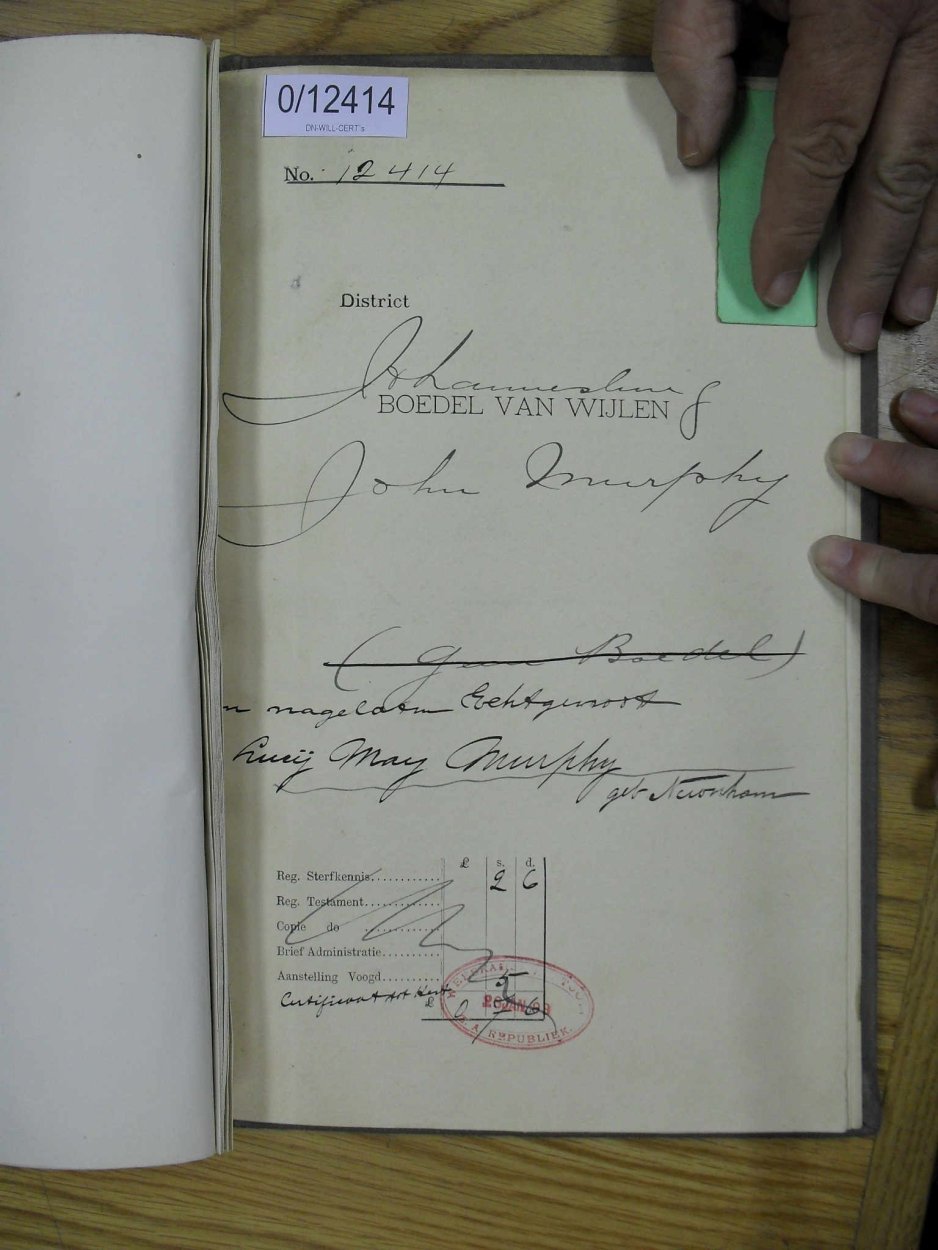 0/12414
DN-WILL-CERT's
No. 12414
District
Johannesburg
BOEDEL VAN WIJLEN
John Murphy
(Geen Boedel)
en nagelaten Echtgenoot
Lucij May Murphy
geb Newnham
£ s. d.
Reg. Sterfkennis........... 2 6
Reg. Testament...........
Copie do ...........
Brief Administratie...........
Aanstelling Voogd........... 5
Certificaat tot
£ 0 7 6
REPUBLIEK.